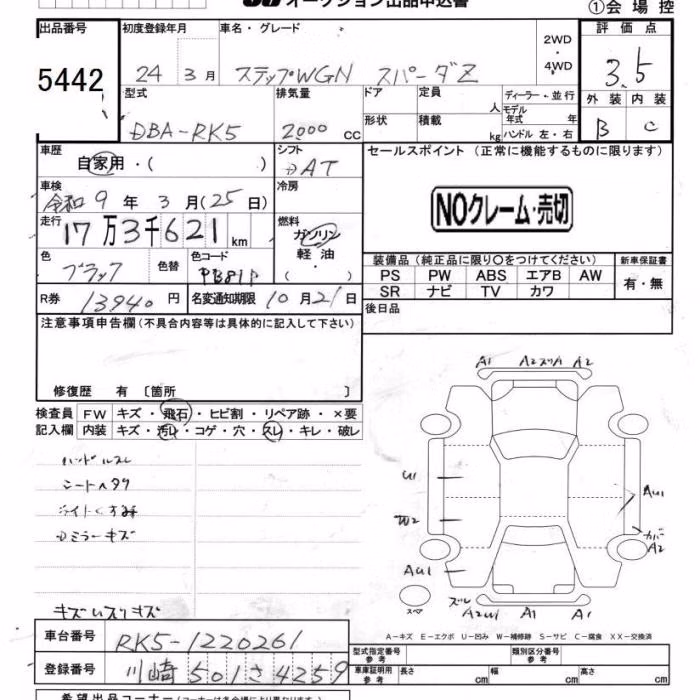 オークション出品申込書
①会場控
出品番号
5442
初度登録年月
24 3月
車名・グレード
ステップWGN スパーダZ
2WD
・
4WD
評価点
3.5
外装 内装
B C
型式
DBA-RK5
排気量
2000 cc
ドア 定員 人
形状 積載 kg
ディーラー・並行
モデル
年式 年
ハンドル 左・右
車歴
自家用・( )
シフト
AT
セールスポイント (正常に機能するものに限ります)
NOクレーム・売切
車検
令和9年3月(25日)
冷房
走行
17万3千621km
燃料
ガソリン
軽油
( )
色
ブラック
色替
色コード
PB81P
装備品 (純正品に限り○をつけてください)
PS PW ABS エアB AW
SR ナビ TV カワ
新車保証書
有・無
R券
13940円
名変通知期限
10月21日
後日品
注意事項申告欄 (不具合内容等は具体的に記入して下さい)
修復歴 有 〔箇所 〕
検査員 FW キズ・飛石・ヒビ割・リペア跡・×要
記入欄 内装 キズ・汚レ・コゲ・穴・スレ・キレ・破レ
ハンドルスレ
シートヘタリ
ライトくすみ
ドミラーキズ
A1 A2ズリA A2
U1
W2
AU1
AU1
カバー
A2
スペア
ズレ
A2W1 A1 A1
A-キズ E-エクボ U-凹み W-補修跡 S-サビ C-腐食 XX-交換済
車台番号
RK5-1220261
登録番号
川崎 501 さ 4259
型式指定番号
参考
類別区分番号
参考
車庫証明用
参考
長さ cm 幅 cm 高さ cm
希望出品コーナー